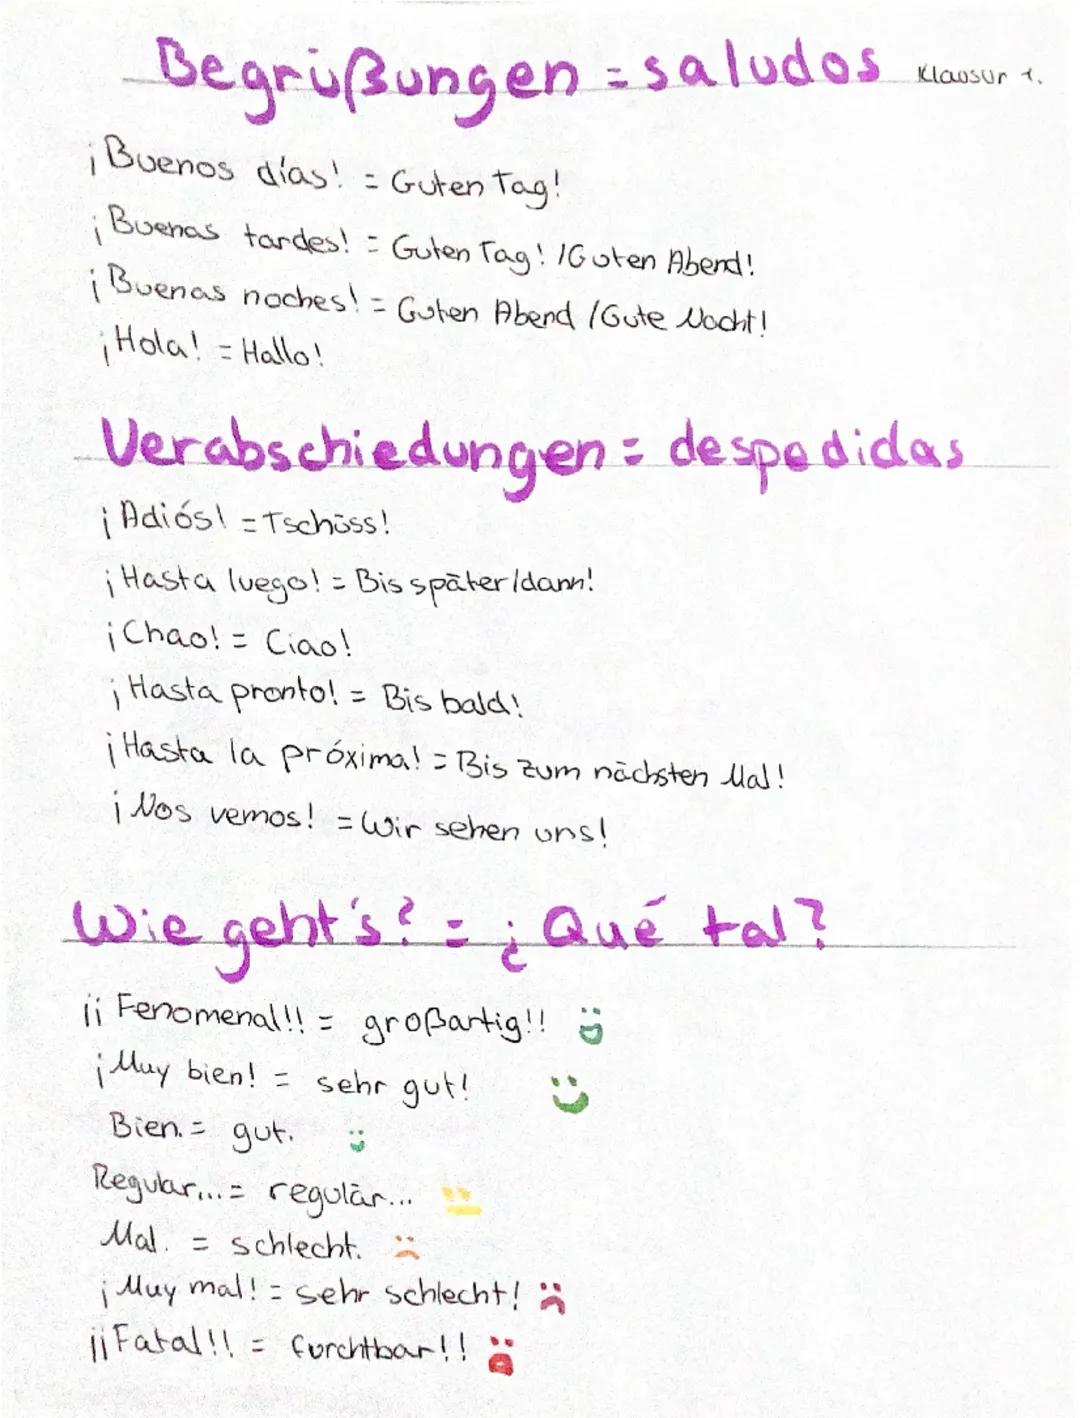 Begrüßungen = saludos Klausur 1.
¡Buenos días! = Guten Tag!
¡Buenas tardes! = Guten Tag! / Guten Abend!
¡Buenas noches! = Guten Abend / Gute Nacht!
¡Hola! = Hallo!
Verabschiedungen = despedidas
¡Adiós! = Tschüss!
¡Hasta luego! = Bis später/dann!
¡Chao! = Ciao!
¡Hasta pronto! = Bis bald!
¡Hasta la próxima! = Bis zum nächsten Mal!
¡Nos vemos! = Wir sehen uns!
Wie geht's? = ¿Qué tal?
¡¡Fenomenal!! = großartig!!
¡Muy bien! = sehr gut!
Bien. = gut.
Regular... = regulär...
Mal. = schlecht.
¡Muy mal! = sehr schlecht!
¡¡Fatal!! = furchtbar!!